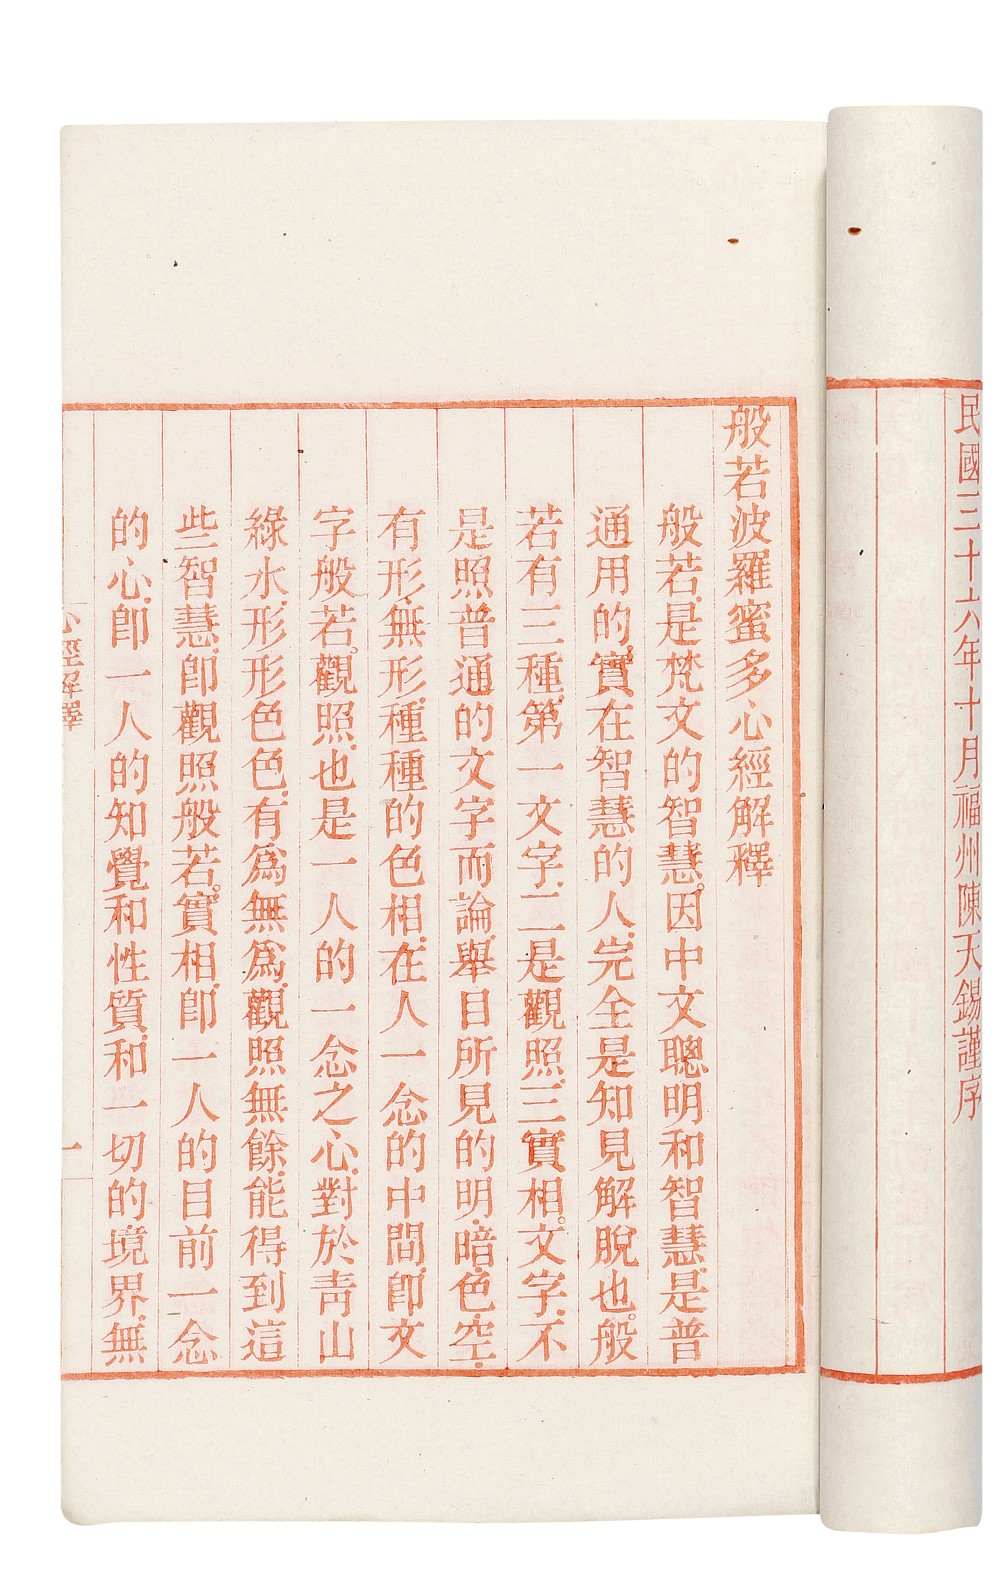 民國三十六年十月福州陳天錫謹序
般若波羅蜜多心經解釋
般若.是梵文的智慧。因中文聰明和智慧.是普
通用的。實在智慧的人.完全是知見解脫也。般
若有三種.第一文字.二是觀照.三實相。文字.不
是照普通的文字而論.舉目所見的明.暗.色.空.
有形.無形.種種的色相.在人一念的中間.卽文
字般若。觀照.也是一人的一念之心.對於靑山
綠水.形形色色.有爲無爲.觀照無餘.能得到這
些智慧.卽觀照般若。實相.卽一人的目前一念
的心.卽一人的知覺和性質.和一切的境界.無
心經解釋
一